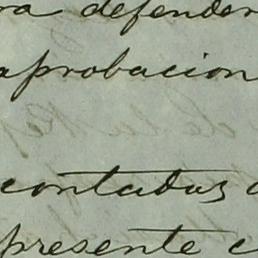 ra defender
aprobacion
contadas
presente